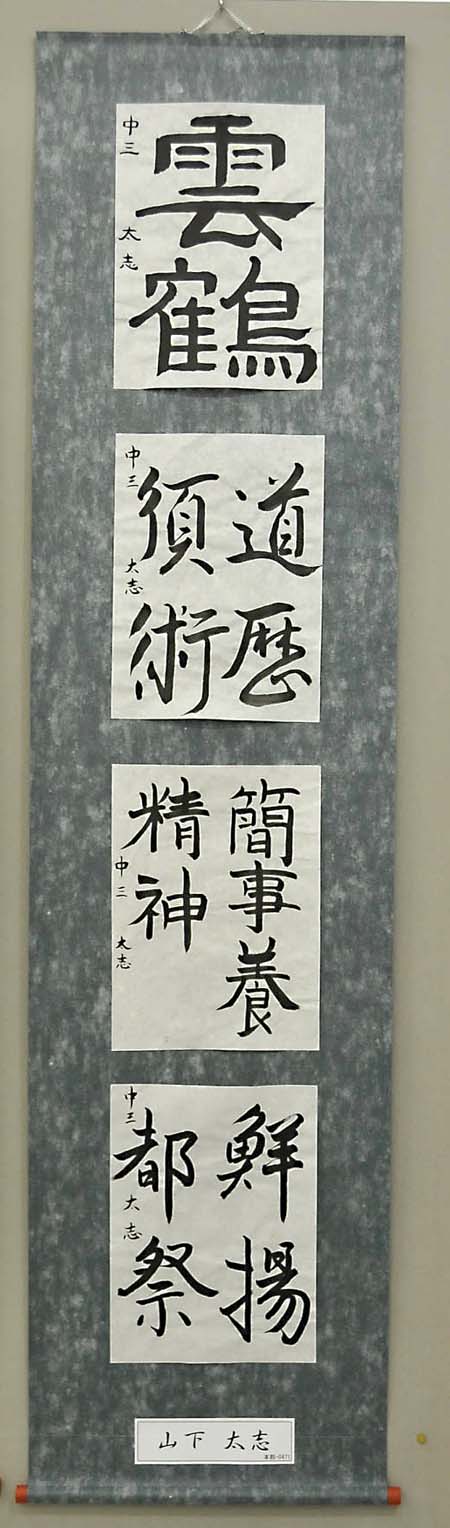 雲鶴
中三 太志
道歴
須術
中三 太志
簡事養
精神
中三 太志
鮮揚
都祭
中三 太志
山下 太志